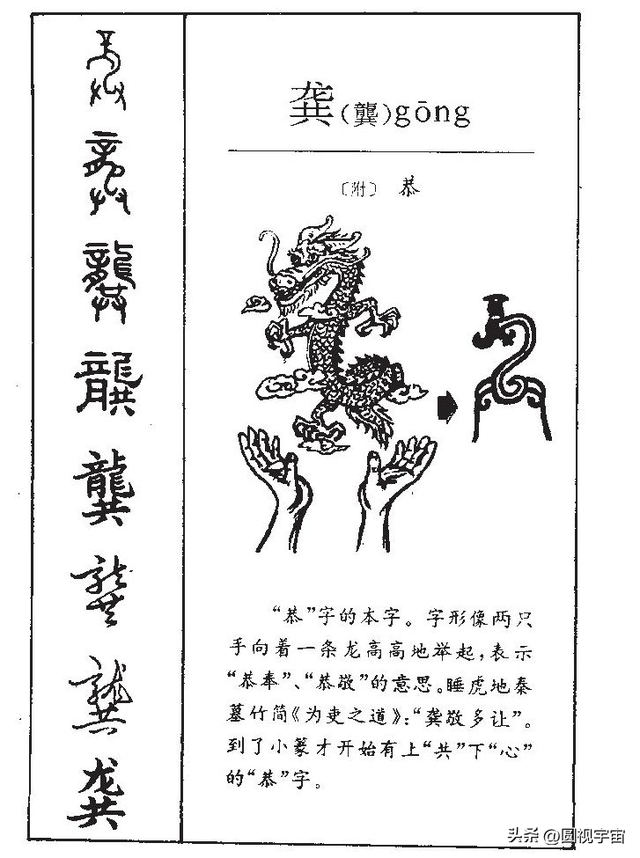 龚(龔)gōng
〔附〕 恭
“恭”字的本字。字形像两只
手向着一条龙高高地举起,表示
“恭奉”、“恭敬”的意思。睡虎地秦
墓竹简《为吏之道》:“龚敬多让”。
到了小篆才开始有上“共”下“心”
的“恭”字。
龔
龔
龔
龚
头条@圆视宇宙